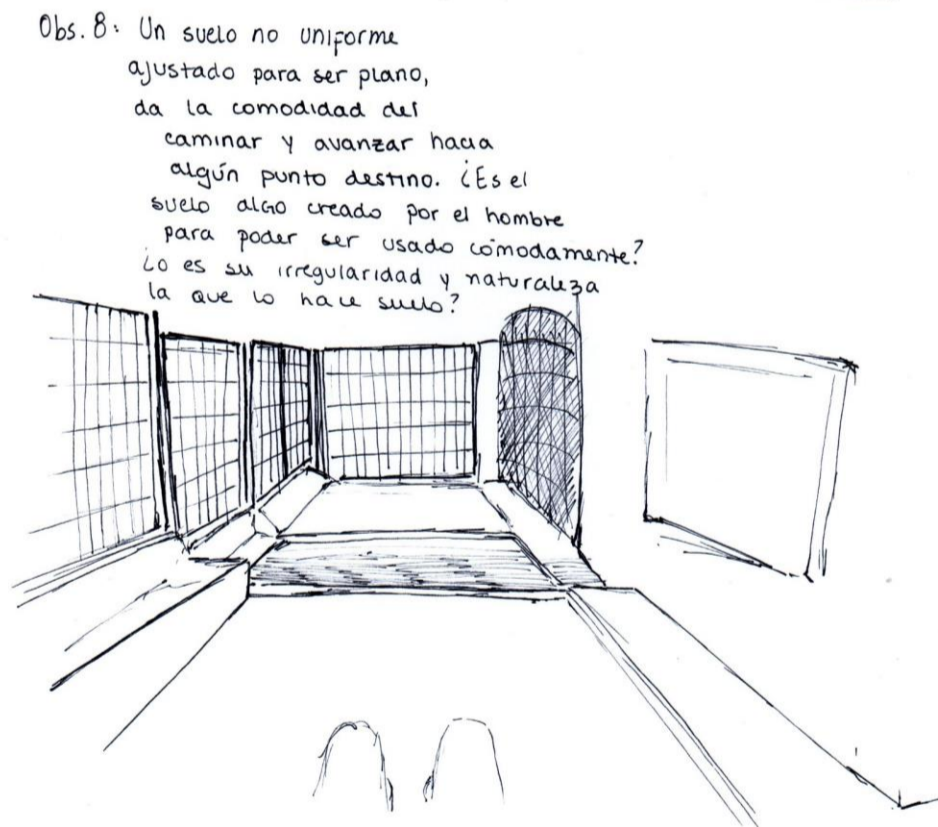 Obs. 8: Un suelo no uniforme
ajustado para ser plano,
da la comodidad del
caminar y avanzar hacia
algún punto destino. ¿Es el
suelo algo creado por el hombre
para poder ser usado cómodamente?
¿o es su irregularidad y naturaleza
la que lo hace suelo?